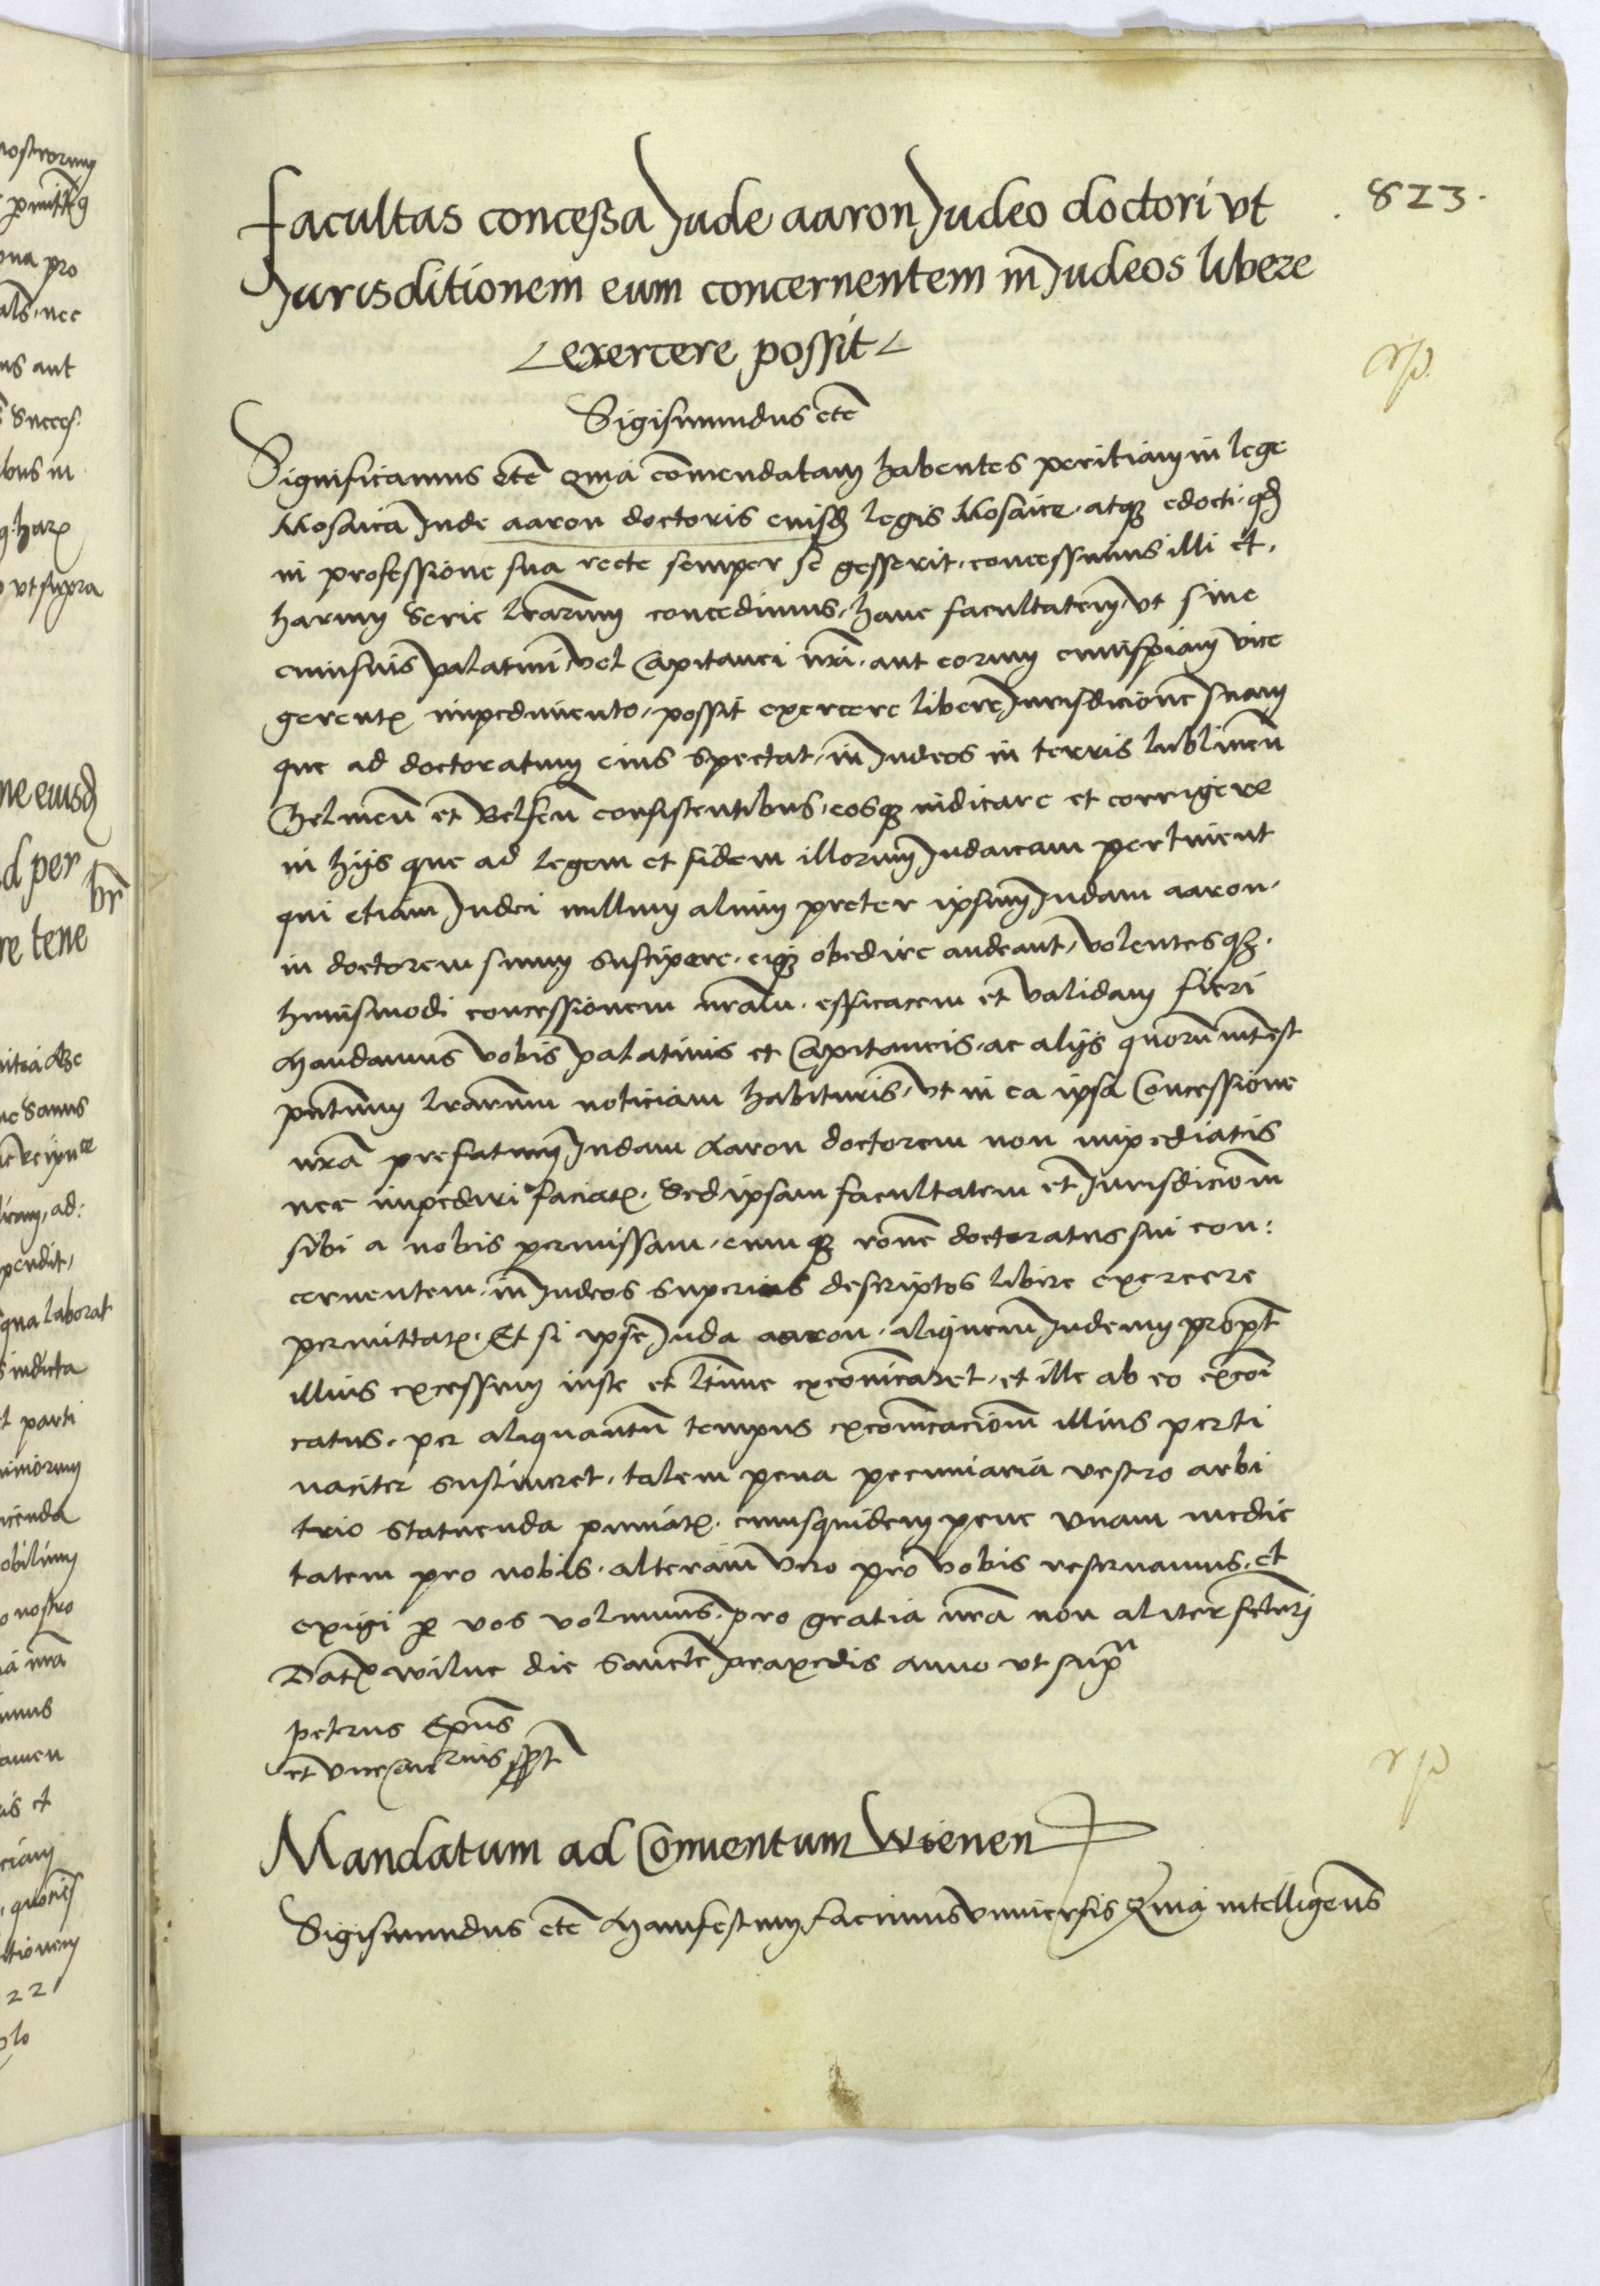 823.
Facultas concessa Jude aaron Judeo doctori vt
Jurisditionem eum concernentem in Judeos libere
exercere possit
Sigismundus etc
Significamus etc Quia comendatam habentes peritiam in lege
Mosaica Jude aaron doctoris eiusd legis Mosaice. atq edocti. qd
in professione sua recte semper se gesserit. concessimus illi et.
harum serie lrarum concedimus, hanc facultatem, vt sine
cuiusuis palatini vel Capitanei nri. aut eorum cuiuspiam vice
gerent impedimento, possit exercere libere Jurisdicione suam
que ad doctoratum eius spectat, in Judeos in terris lublinen
Chelmen et Belsen consistentibus, eosq iudicare et corrigere
in hijs que ad legem et fidem illorum Judaicam pertinent
qui etiam Judei nullum alium preter ipsum Judam aaron.
in doctorem suum suscipere. eiq obedire audeant, volentesq.
huiusmodi concessionem nram. efficacem et validam fieri
Mandamus vobis palatinis et Capitaneis. ac alijs quoru intest
pntium lrarum noticiam habituris, vt in ea ipsa Concessione
nra prefatum Judam Aaron doctorem non impediatis
nec impediri faciat. Sed ipsam facultatem et Jurisdiciom
sibi a nobis permissam. eumq rone doctoratus sui con:
cernentem. in Judeos superius descriptos libere exercere
permittat. Et si ipse Juda aaron. aliquem Judeum propt
illius excessum iuste et ltime excomicaret. et ille ab eo excoi
catus. per aliquantu tempus excomcaciom illius perti
naciter sustineret. talem pena pecuniaria vestro arbi
trio statuenda puniat. cuiusquidem pene vnam medie
tatem pro nobis. alteram vero pro vobis reseruamus. et
exigi p vos volumus. pro gratia nra non aliter fcturi
Dat Wilne die Sancte praxedis anno vt supra
petrus Epus
et vicecancrius sspt
Mandatum ad Conuentum Wienen
Sigismundus etc Manifestum facimus vniuersis Quia intelligens